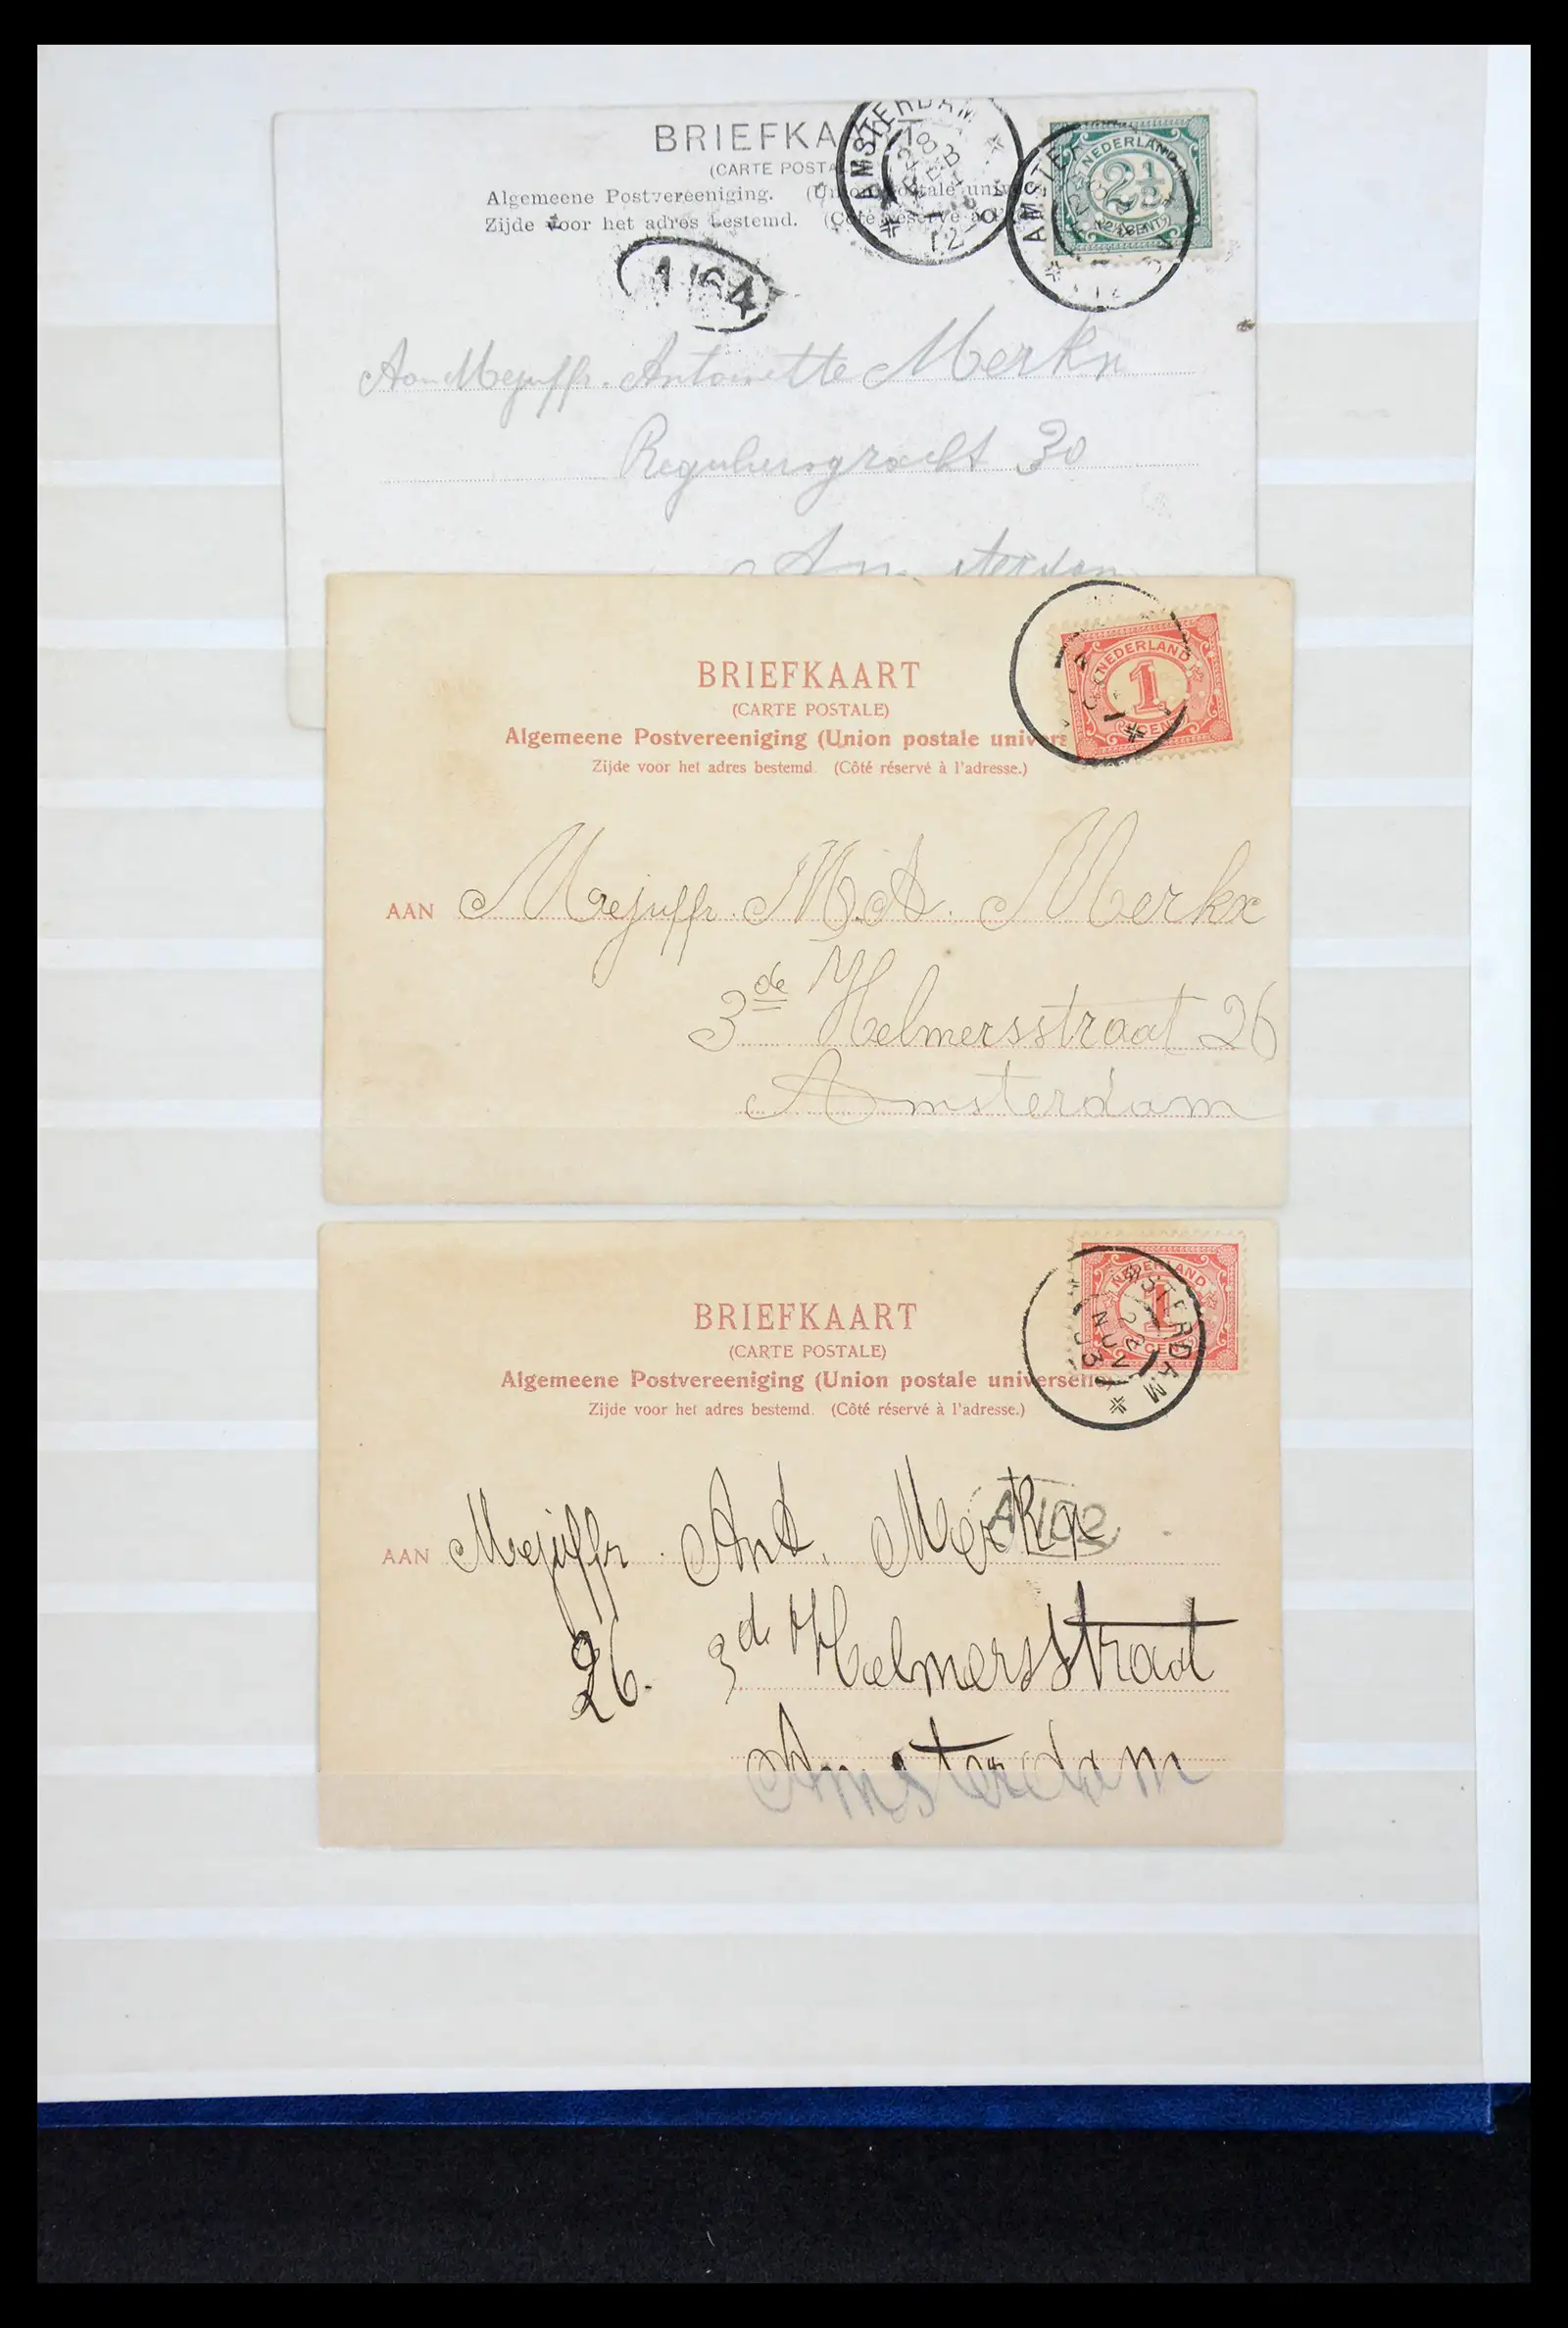 BRIEFKA
(CARTE POSTA
Algemeene Postvereeniging. (Union postale univ
Zijde voor het adres bestemd. (Côté réservé à
AMSTERDAM
28
FEB
12-
NEDERLAND
2½
2½ CENT
AMSTE
1/64
Aan Mejuffr. Antoinette Merkx
Reguliersgracht 30
Amsterdam
BRIEFKAART
(CARTE POSTALE)
Algemeene Postvereeniging (Union postale univers
Zijde voor het adres bestemd. (Côté réservé à l'adresse.)
NEDERLAND
1
CENT
AAN Mejuffr. M. A. Merkx
3de Helmersstraat 26
Amsterdam
BRIEFKAART
(CARTE POSTALE)
Algemeene Postvereeniging (Union postale universelle
Zijde voor het adres bestemd. (Côté réservé à l'adresse.)
NEDERLAND
1
CENT
MSTERDAM
AAN Mejuffr. Ant. Merkx
A102
26. 3d Helmersstraat
Amsterdam
Amsterdam